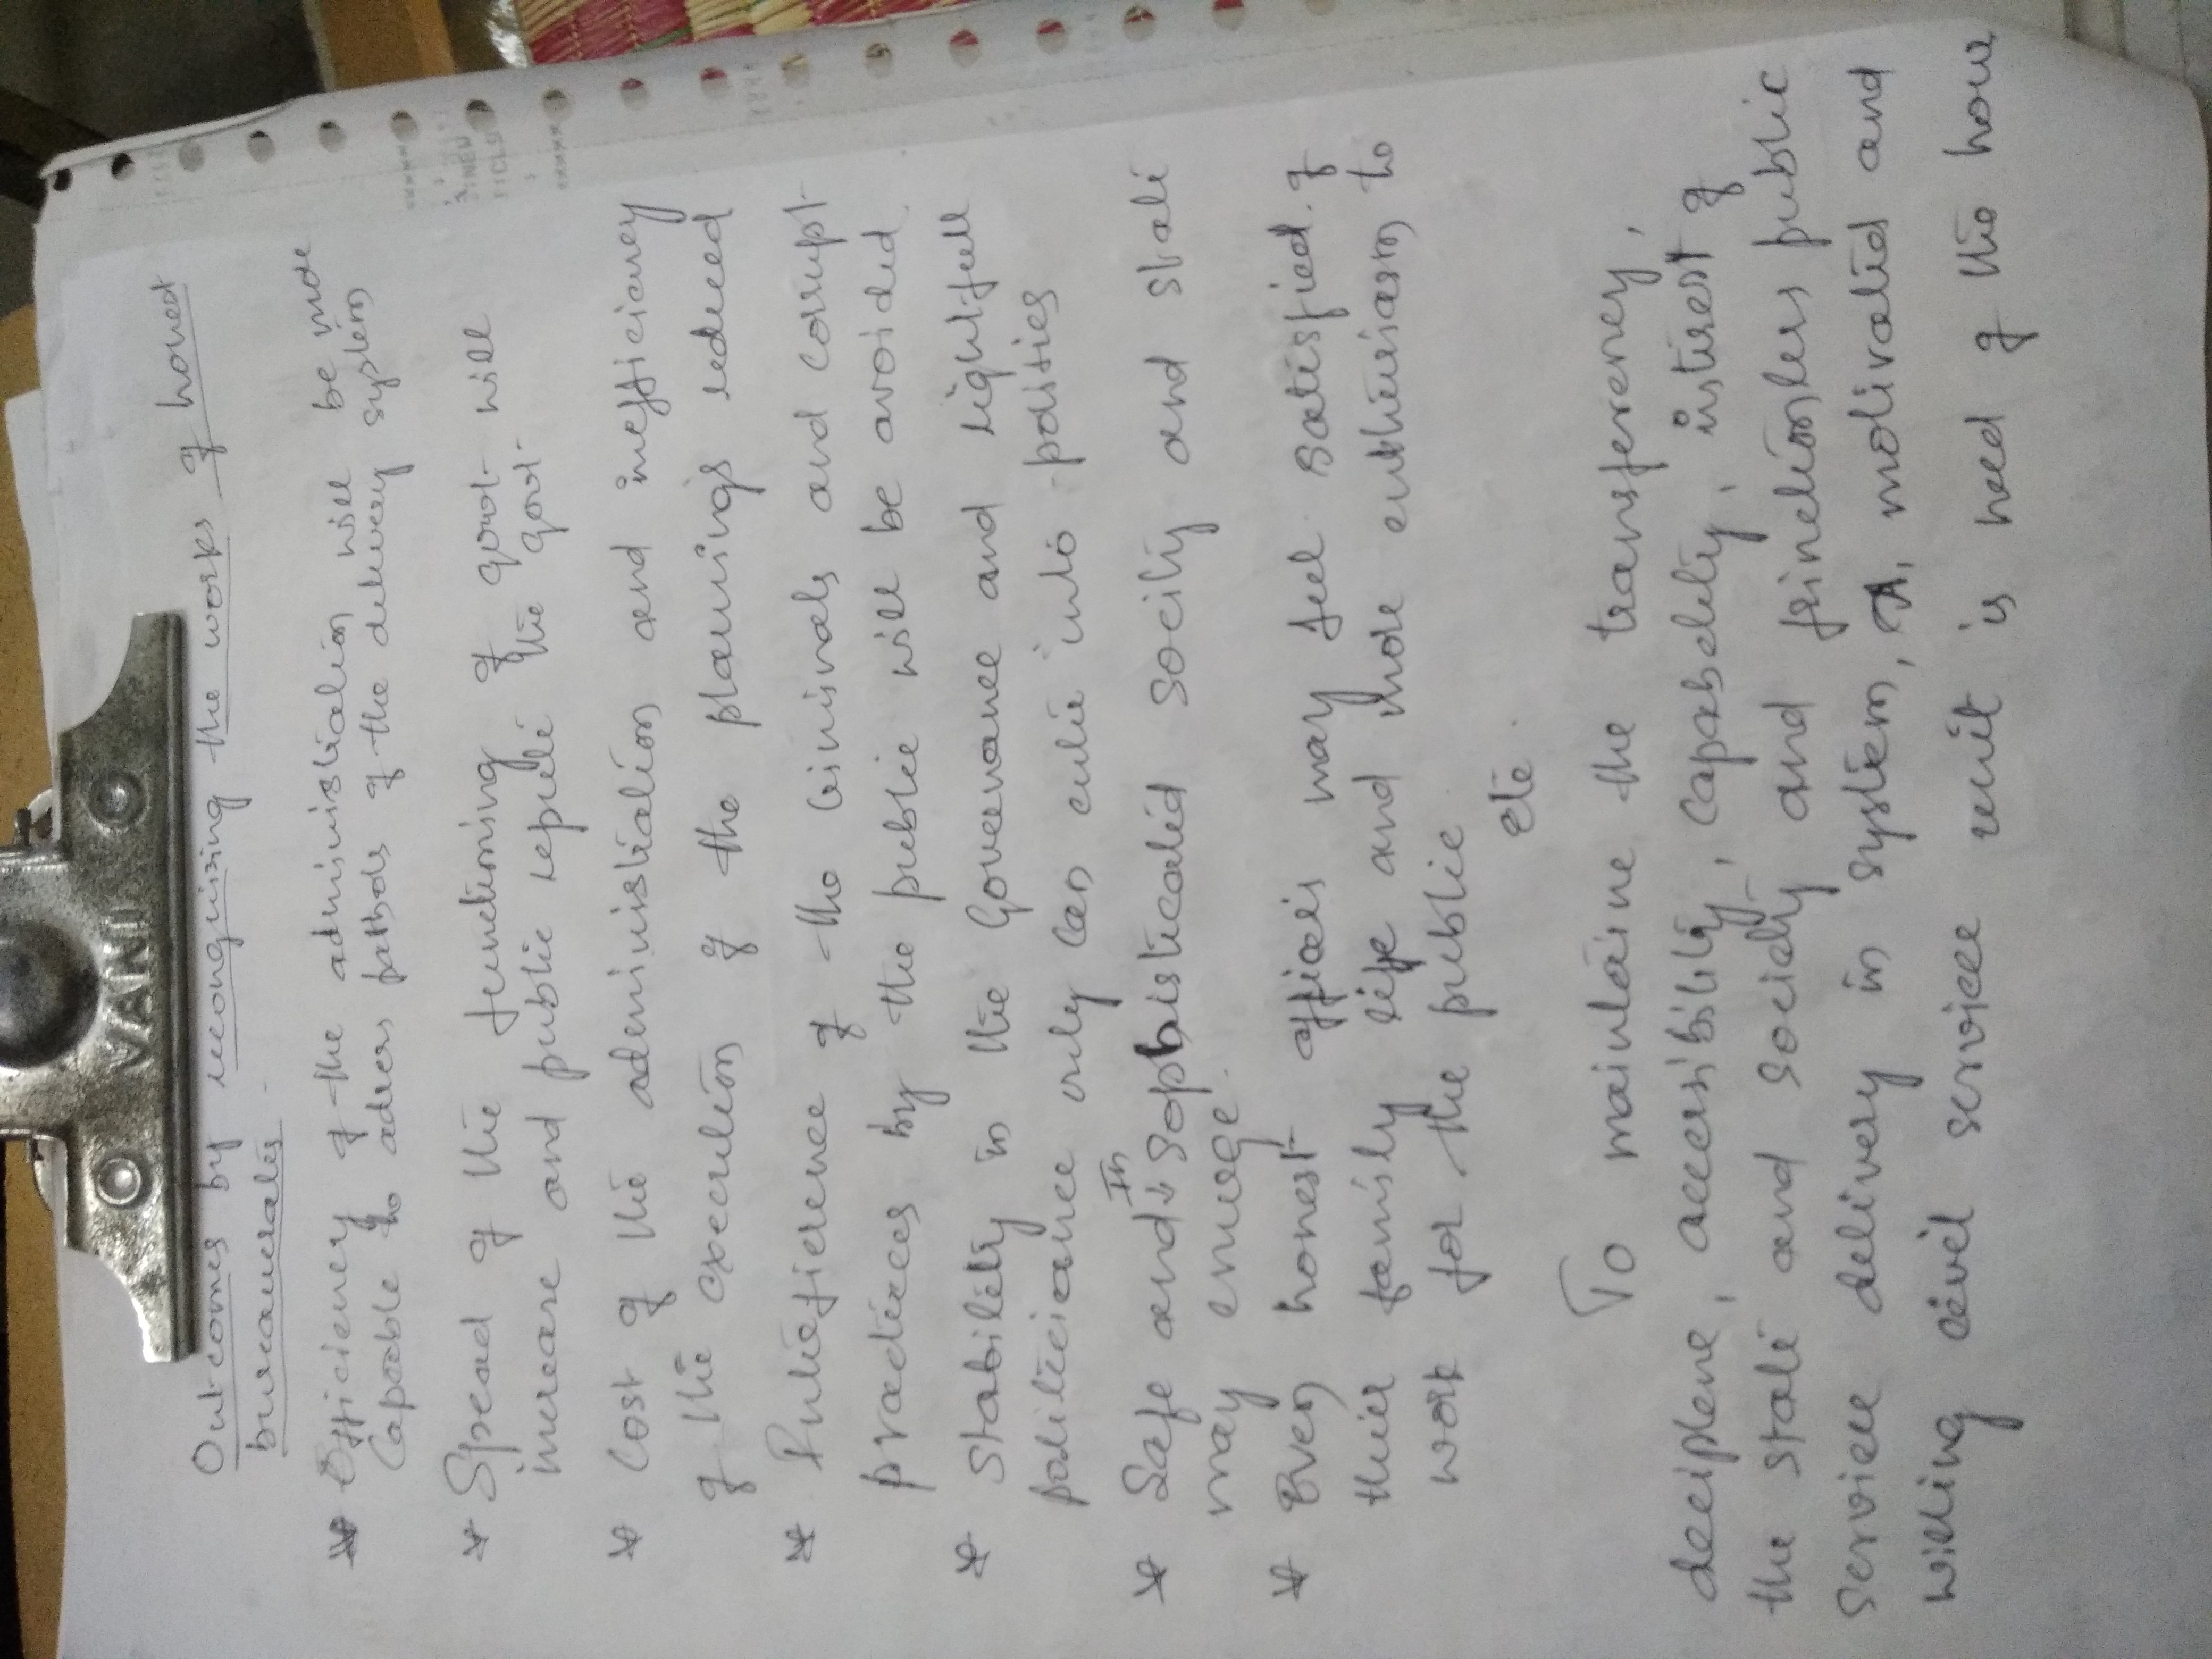 Out-comes by recongnising the works of honest
bureaucrates.
* Efficiency of the administration will be more
Capable to adress pathols of the delivery system
* Spead of the functioning of govt- will
increase and public repute of the govt-
* Cost of the administration and inefficiancy
of the execution of the planning's reduced
* Interference of the criminals and corrupt-
practices by the public will be avoided.
* Stability in the Governance and rightfull
politiciance only can enter into parties
* Safe and In sophisticated socity and state
may emerge.
* Even honest officers may feel satisfied of
thier family life and more enthusiasm to
work for the public
etc.
To maintaine the transferency,
deciplene, accessibility, capabelity, interest of
the state and society and frinctionless public
service delivery in system, A, motivated and
willing civil service unit is need of the hour
VANI